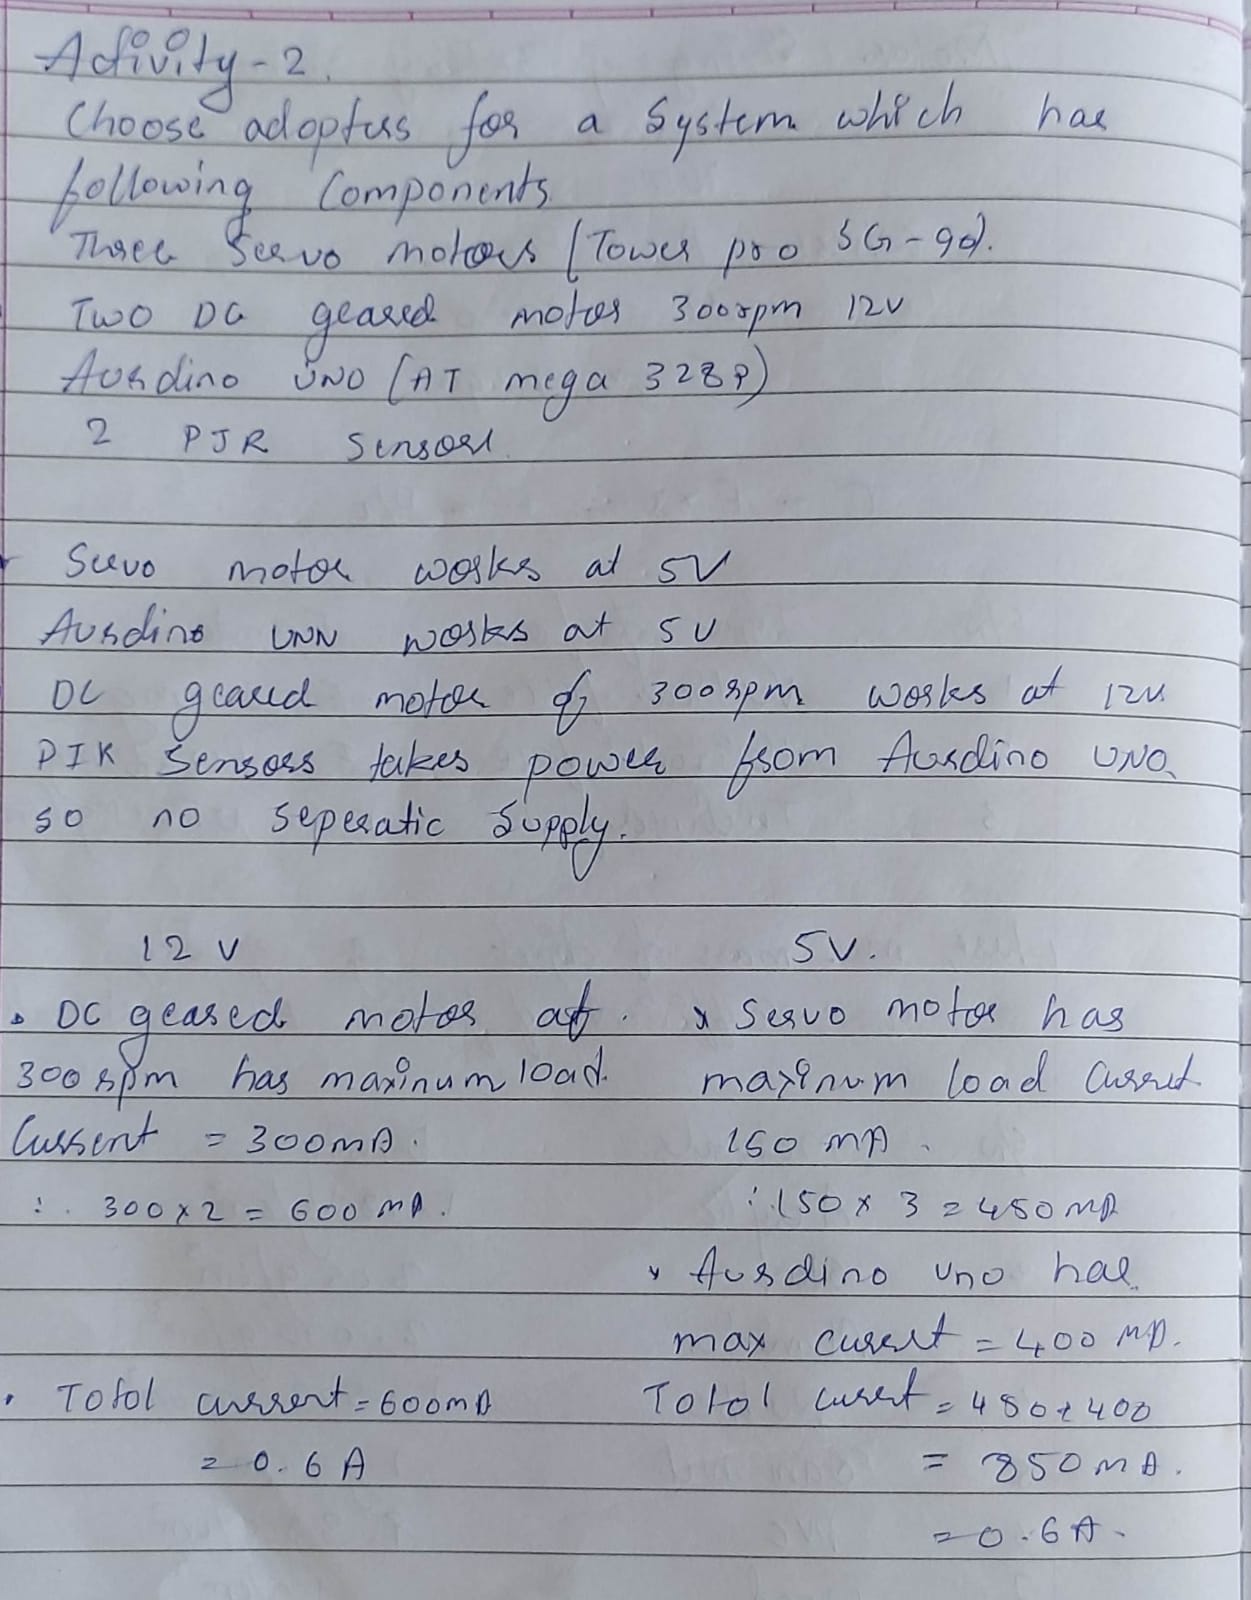 Activity-2.
Choose adopters for a System which has
following Components
Three Servo motors (Tower pro SG-90).
Two DC geared motor 300rpm 12V
Aurdino UNO (AT mega 328P)
2 PIR Sensors.
Servo motor works at 5V
Aurdino UNN works at 5V
DC geared motor of 300rpm works at 12V.
PIR Sensors takes power from Aurdino UNO,
so no seperatic Supply.
12 V
5V.
DC geared motor at.
300 rpm has maxinum load.
Current = 300mA.
∴ 300x2 = 600 mA.
Total current = 600mA
= 0.6 A
x Servo motor has
maxinum load Current
150 mA.
∴ 150 x 3 = 450 mA
x Aurdino uno has
max current = 400 mA.
Total current = 450+400
= 850mA.
= 0.6A.